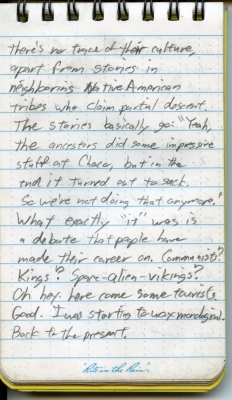 There's no trace of their culture,
apart from stories in
neighboring Native American
tribes who claim partial descent.
The stories basically go: "Yeah,
the ancestors did some impressive
stuff at Chaco, but in the
end it turned out to suck.
So we're not doing that anymore."
What exactly "it" was is
a debate that people have
made their career on. Communists?
Kings? Space-alien-vikings?
Oh hey. here come some tourists.
Good. I was starting to wax monological.
Back to the present.
"Rite in the Rain"